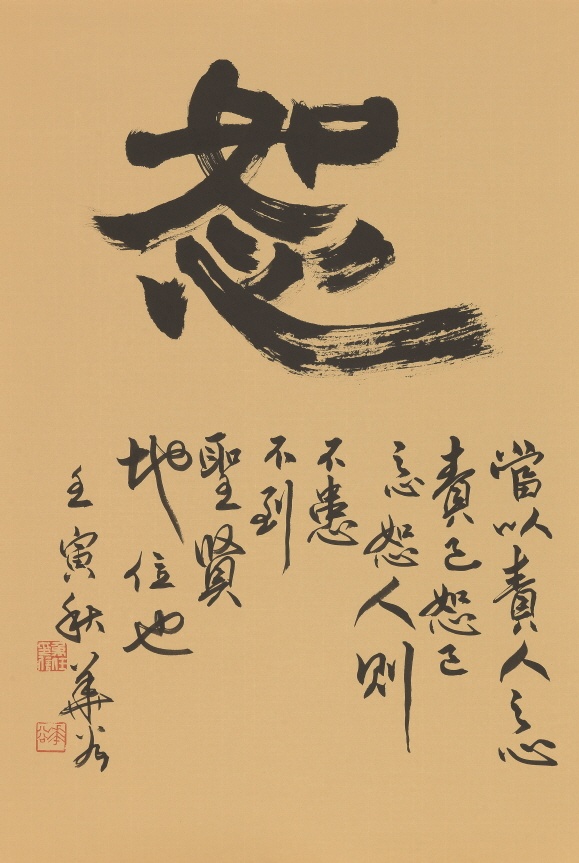 恕
當以責人之心
責己恕己
之心恕人則
不患
不到
聖賢
地位也
壬寅秋 華谷